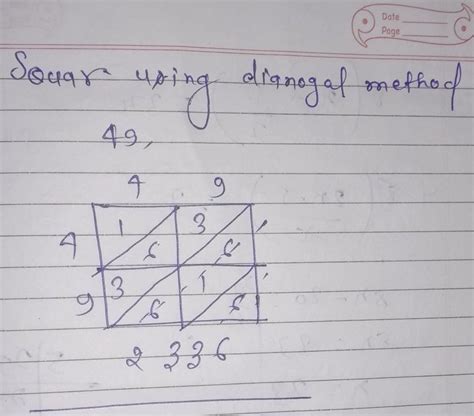 Date
Page
Souar using dianogal method
49,
4 9
4 1 6 3 6
9 3 6 1 6
2 3 3 6